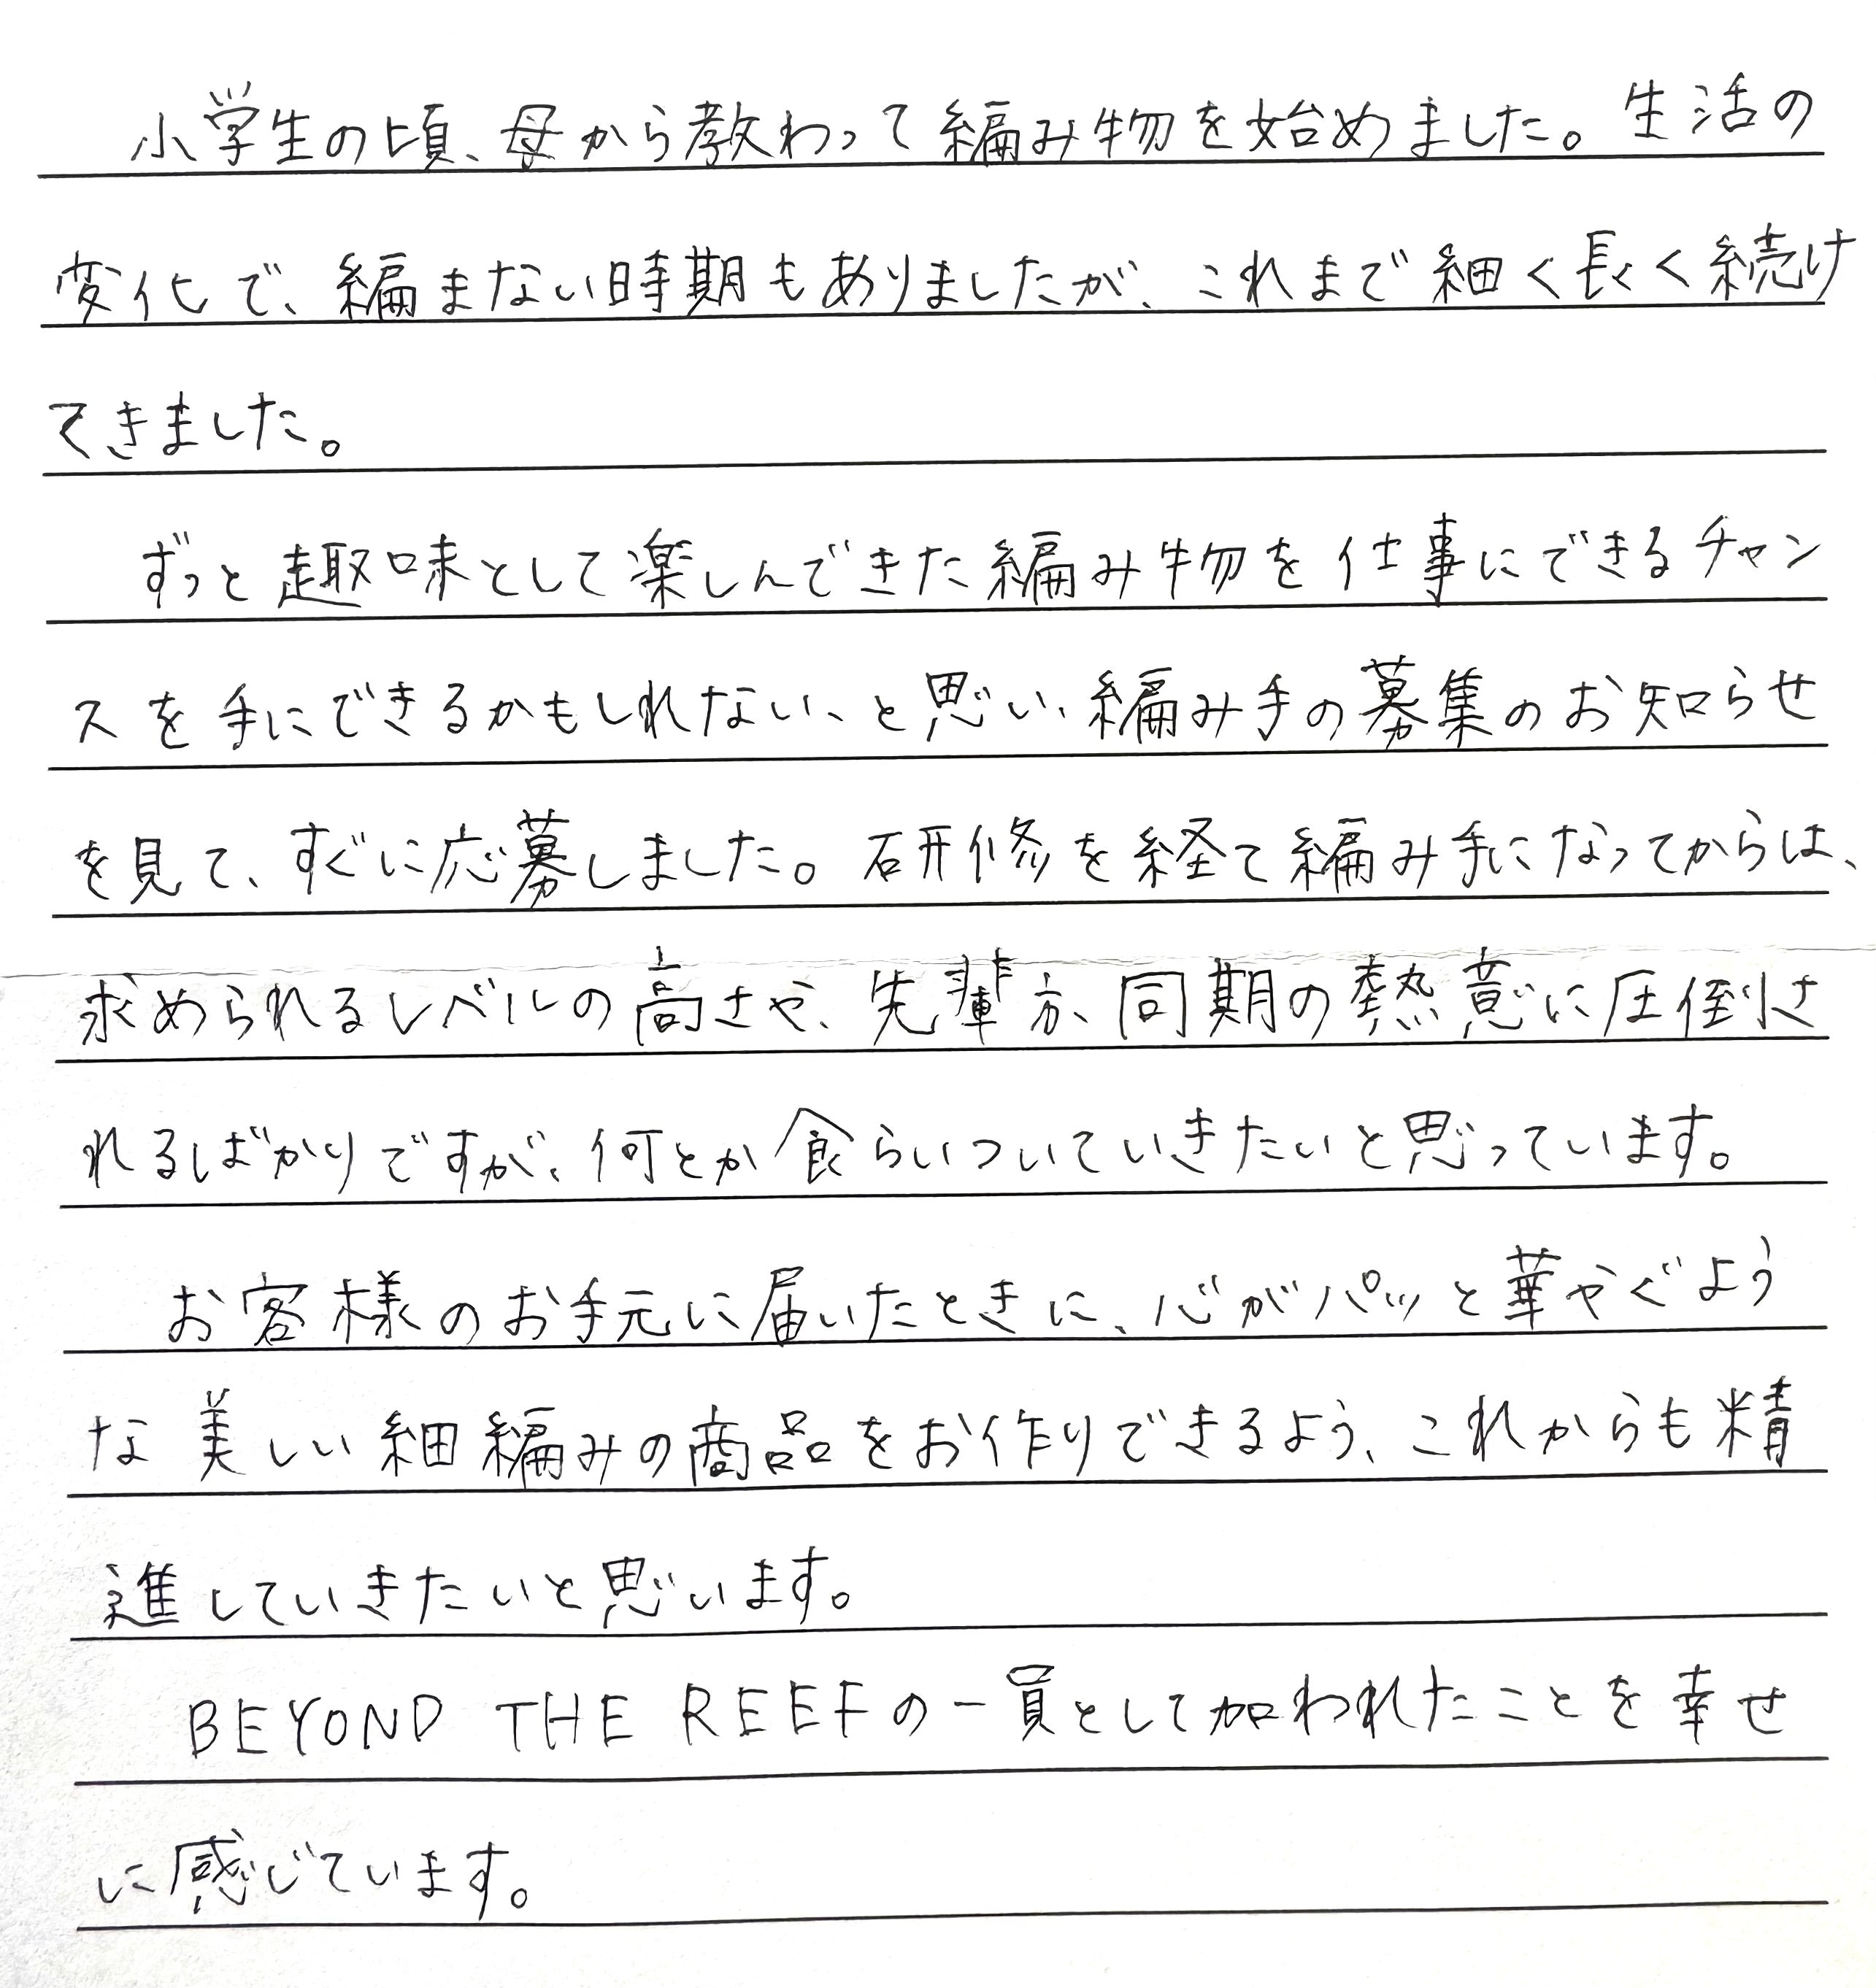 小学生の頃、母から教わって編み物を始めました。生活の
変化で、編まない時期もありましたが、これまで細く長く続け
てきました。
ずっと趣味として楽しんできた編み物を仕事にできるチャン
スを手にできるかもしれない、と思い、編み手の募集のお知らせ
を見て、すぐに応募しました。研修を経て編み手になってからは、
求められるレベルの高さや、先輩方、同期の熱意に圧倒さ
れるばかりですが、何とか食らいついていきたいと思っています。
お客様のお手元に届いたときに、心がパッと華やぐよう
な美しい細編みの商品をお作りできるよう、これからも精
進していきたいと思います。
BEYOND THE REEFの一員として加われたことを幸せ
に感じています。